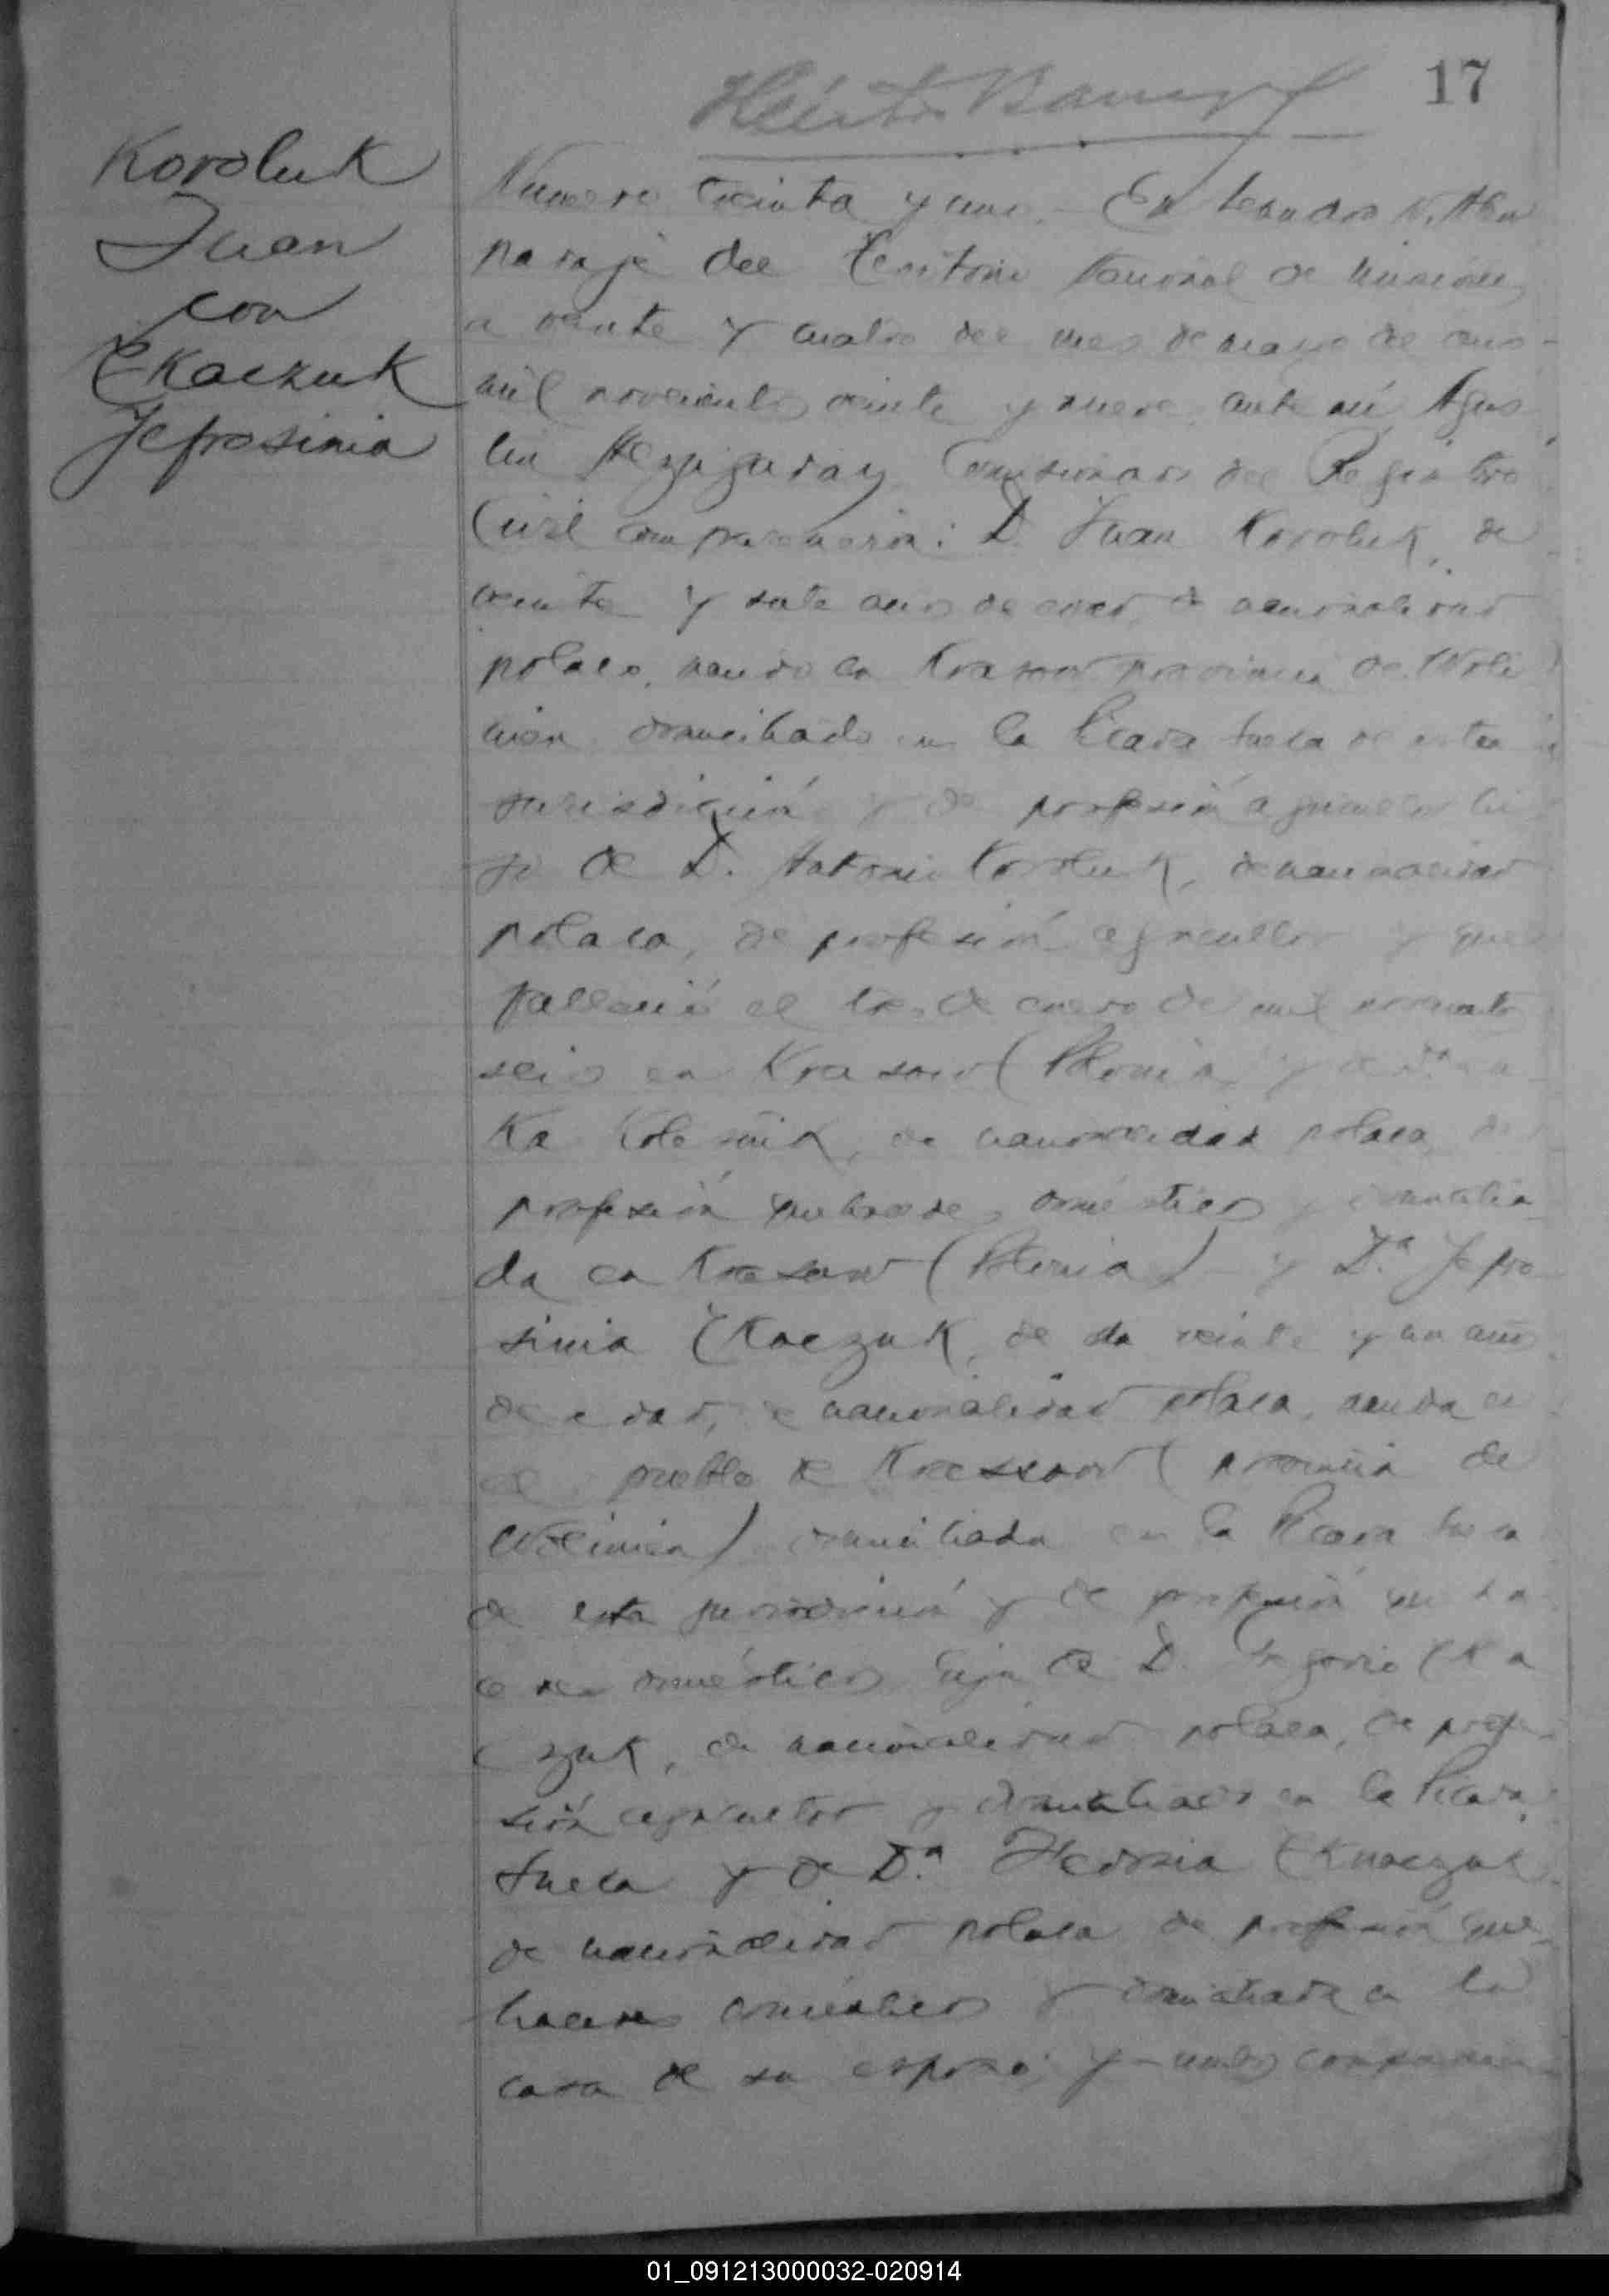 17
Koroluk
Juan
con
Tkaczuk
Jefrosinia
Numero treinta y uno. En Leandro N. Alem
paraje del Territorio Nacional de Misiones
a veinte y cuatro del mes de mayo de
mil novecientos veinte y nueve, ante mí, Agus
tin del Registro
Civil comparecieron: D. Juan Koroluk, de
veinte y siete años de edad, de nacionalidad
polaco, nacido en provincia de Woli
nien domiciliado en la Picada Sueca de esta
jurisdicción y de profesión agricultor hi
jo de D. Antonio Koroluk, de nacionalidad
polaca, de profesión agricultor y que
falleció el tres de enero de mil novecientos
seis en Krasow (Polonia) y de Da
Ka Kolesnik, de nacionalidad polaca, de
profesión quehaceres domésticos y domicilia
da en Kresow (Polonia) y Da. Jefro
sinia Tkaczuk, de veinte y un años
de edad, de nacionalidad polaca, nacida en
el pueblo de (provincia de
domiciliada en la Picada Sueca
de esta jurisdicción y de profesión que ha
ceres domésticos hija de D. Gregorio Tka
czuk, de nacionalidad polaca, de profe
sión agricultor y domiciliado en la Picada
Sueca y de Da. Fedosia
de nacionalidad polaca de profesión que
haceres domésticos y domiciliada en la
casa de su esposo; y
01_091213000032-020914